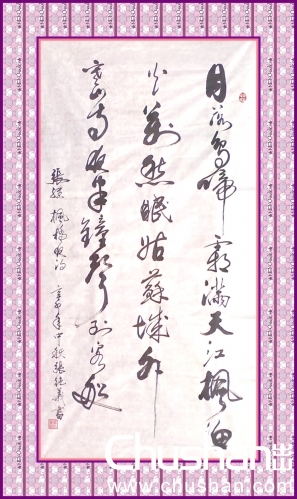 月落烏啼霜滿天江楓漁
火對愁眠姑蘇城外
寒山寺夜半鐘聲到客船
張繼 楓橋夜泊 辛卯年中秋張華書
Chushan
www.chushan.com